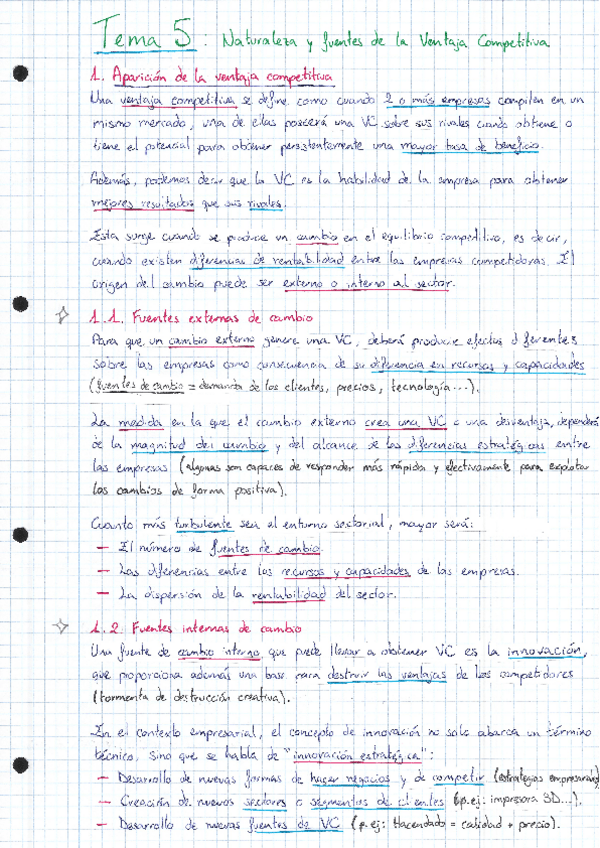 Tema 5: Naturaleza y fuentes de la Ventaja Competitiva
1. Aparición de la ventaja competitiva
Una ventaja competitiva se define como cuando 2 o más empresas compiten en un
mismo mercado, una de ellas poseerá una VC sobre sus rivales cuando obtiene o
tiene el potencial para obtener persistentemente una mayor tasa de beneficio.
Además, podemos decir que la VC es la habilidad de la empresa para obtener
mejores resultados que sus rivales.
Esta surge cuando se produce un cambio en el equilibrio competitivo, es decir,
cuando existen diferencias de rentabilidad entre las empresas competidoras. El
origen del cambio puede ser externo o interno al sector.
1.1. Fuentes externas de cambio
Para que un cambio externo genere una VC, deberá producir efectos diferentes
sobre las empresas como consecuencia de su diferencia en recursos y capacidades
(fuentes de cambio = demanda de los clientes, precios, tecnología...).
La medida en la que el cambio externo crea una VC o una desventaja, dependerá
de la magnitud del cambio y del alcance de las diferencias estratégicas entre
las empresas (algunas son capaces de responder más rápida y efectivamente para explotar
los cambios de forma positiva).
Cuanto más turbulento sea el entorno sectorial, mayor será:
— El número de fuentes de cambio.
— Las diferencias entre los recursos y capacidades de las empresas.
— La dispersión de la rentabilidad del sector.
1.2 Fuentes internas de cambio
Una fuente de cambio interno que puede llevar a obtener VC es la innovación,
que proporciona además una base para destruir las ventajas de los competidores
(tormenta de destrucción creativa).
En el contexto empresarial, el concepto de innovación no solo abarca un término
técnico, sino que se habla de "innovación estratégica":
— Desarrollo de nuevas formas de hacer negocios y de competir (estrategias empresariales)
— Creación de nuevos sectores o segmentos de clientes (p.ej: impresora 3D...).
— Desarrollo de nuevas fuentes de VC (p.ej: Hacendado = calidad + precio).